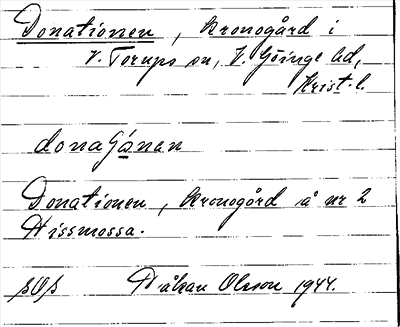 Donationen, kronogård i
V. Torups sn, V. Göinge hd,
Krist. l.
donaʃọ́nen
Donationen, kronogård å nr 2
Hissmossa.
Håkan Olsson 1944.